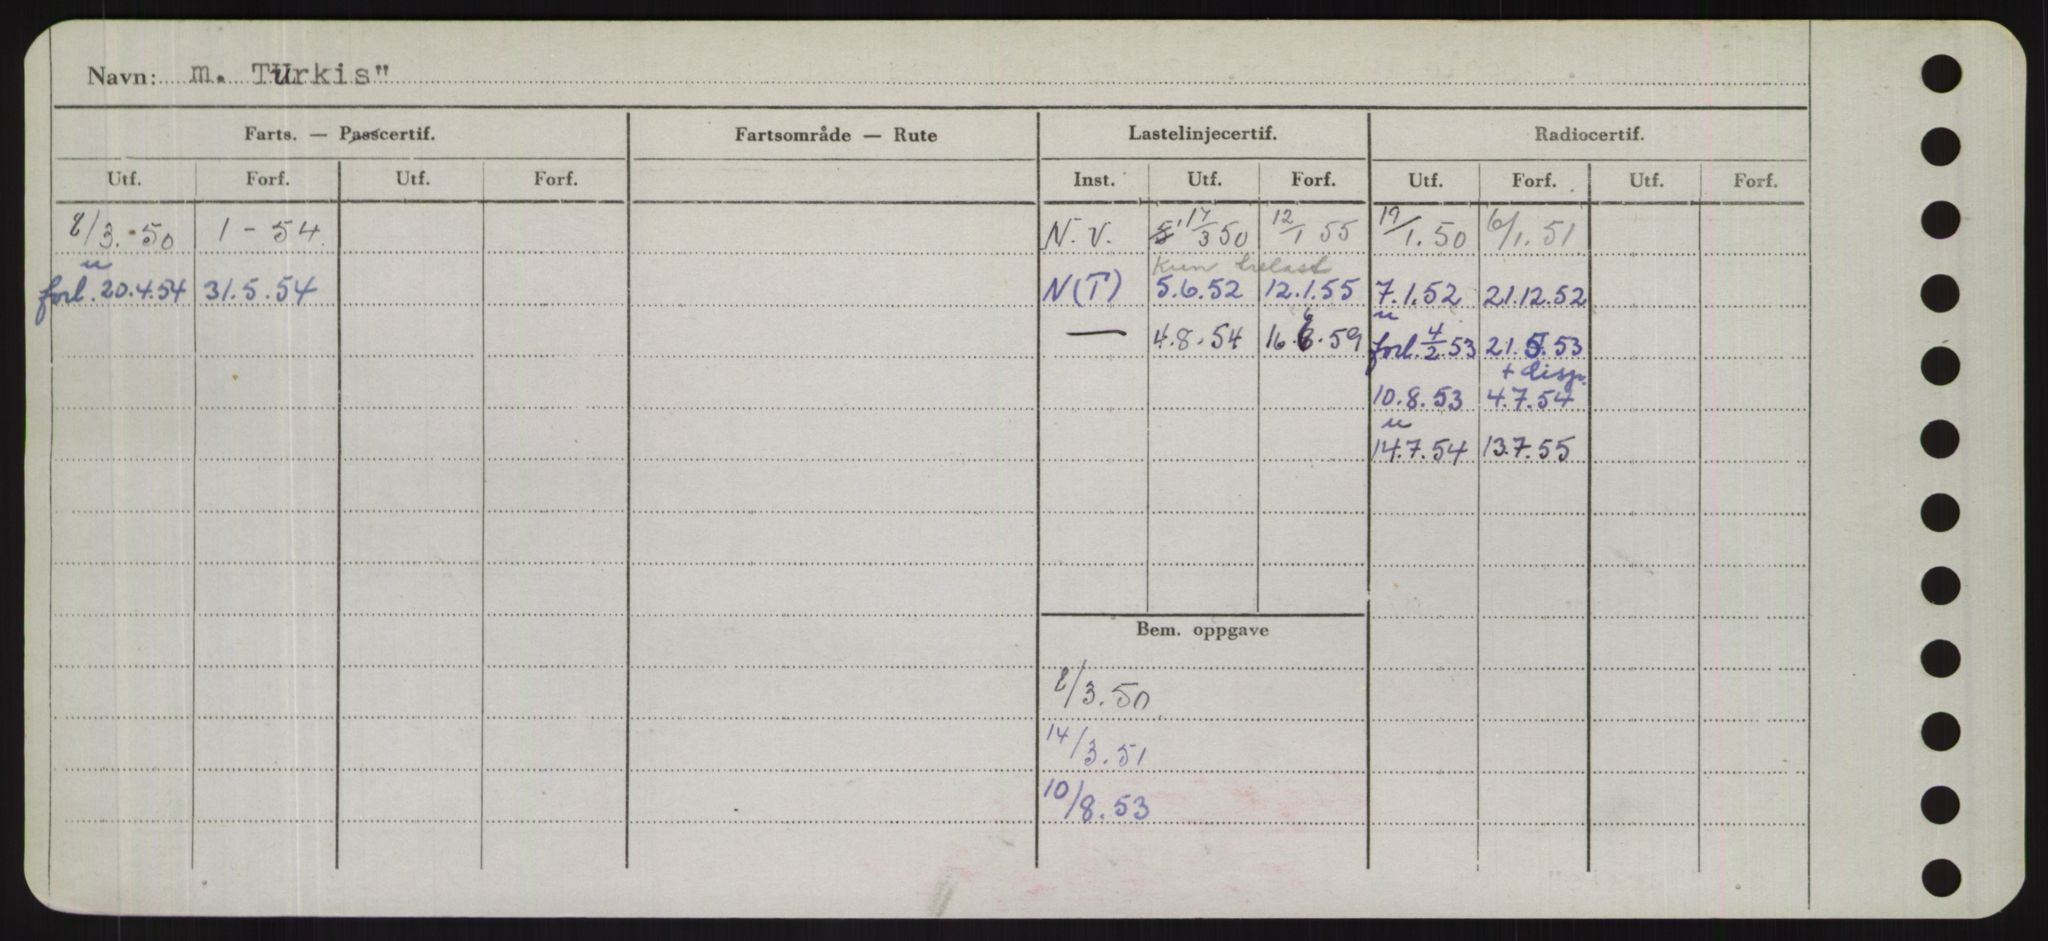 Navn: m. TUrkis"
Farts. — Passcertif. Fartsområde — Rute Lastelinjecertif. Radiocertif.
Utf. Forf. Utf. Forf. Inst. Utf. Forf. Utf. Forf. Utf. Forf.
8/3.50 1-54 N.V. 17/3 50 12/1 55 19/1.50 6/1.51
u Kun trelast
forl. 20.4.54 31.5.54 N(T) 5.6.52 12.1.55 7.1.52 21.12.52
u
— 4.8.54 16.6.59 forl. 4/2.53 21.5.53
+ disp.
10.8.53 4.7.54
u
14.7.54 13.7.55
Bem. oppgave
8/3.50
14/3.51
10/8.53